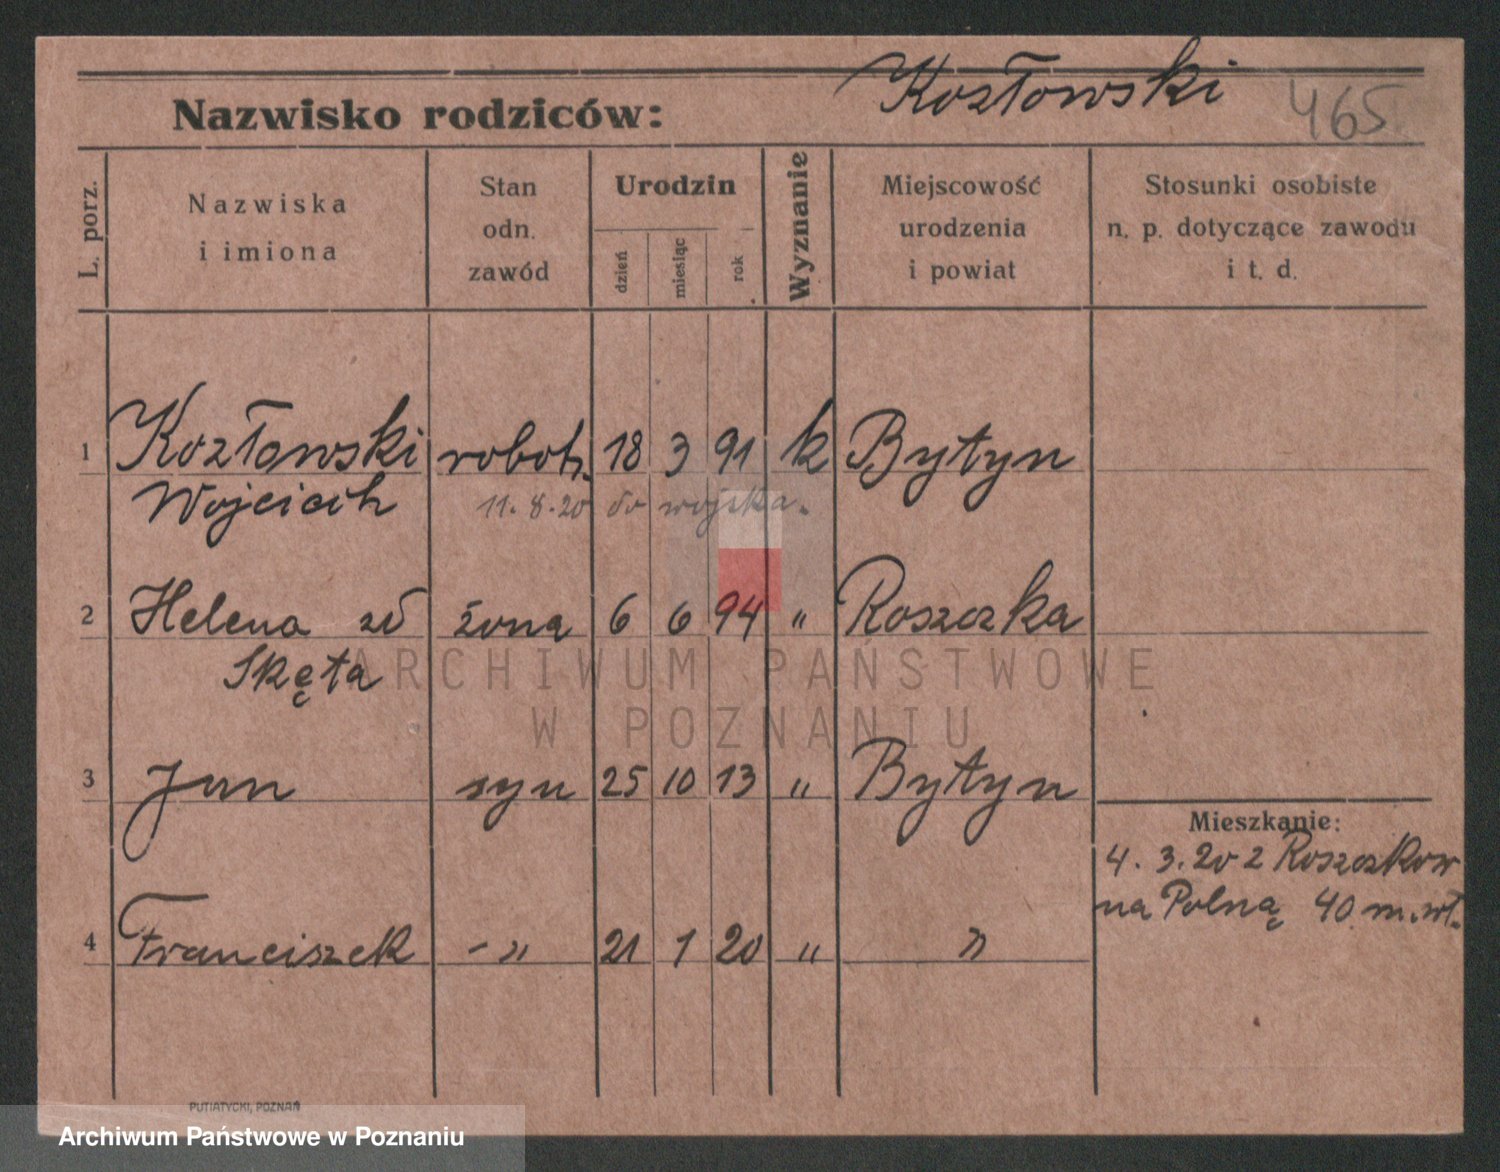 Nazwisko rodziców: Kozłowski 465
L. porz.
Nazwiska
i imiona
Stan
odn.
zawód
Urodzin
dzień
miesiąc
rok
Wyznanie
Miejscowość
urodzenia
i powiat
Stosunki osobiste
n. p. dotyczące zawodu
i t. d.
1 Kozłowski robotn. 18 3 91 k Bytyn
Wojciech 11.8.20 do wojska.
2 Helena zd żona 6 6 94 " Roszczka
Skęta
3 Jan syn 25 10 13 " Bytyn
Mieszkanie:
4.3.20 z Roszczkow
na Polną 40 m. wł.
4 Franciszek -" 21 1 20 " "
PUTIATYCKI, POZNAŃ
ARCHIWUM PAŃSTWOWE
W POZNANIU
Archiwum Państwowe w Poznaniu